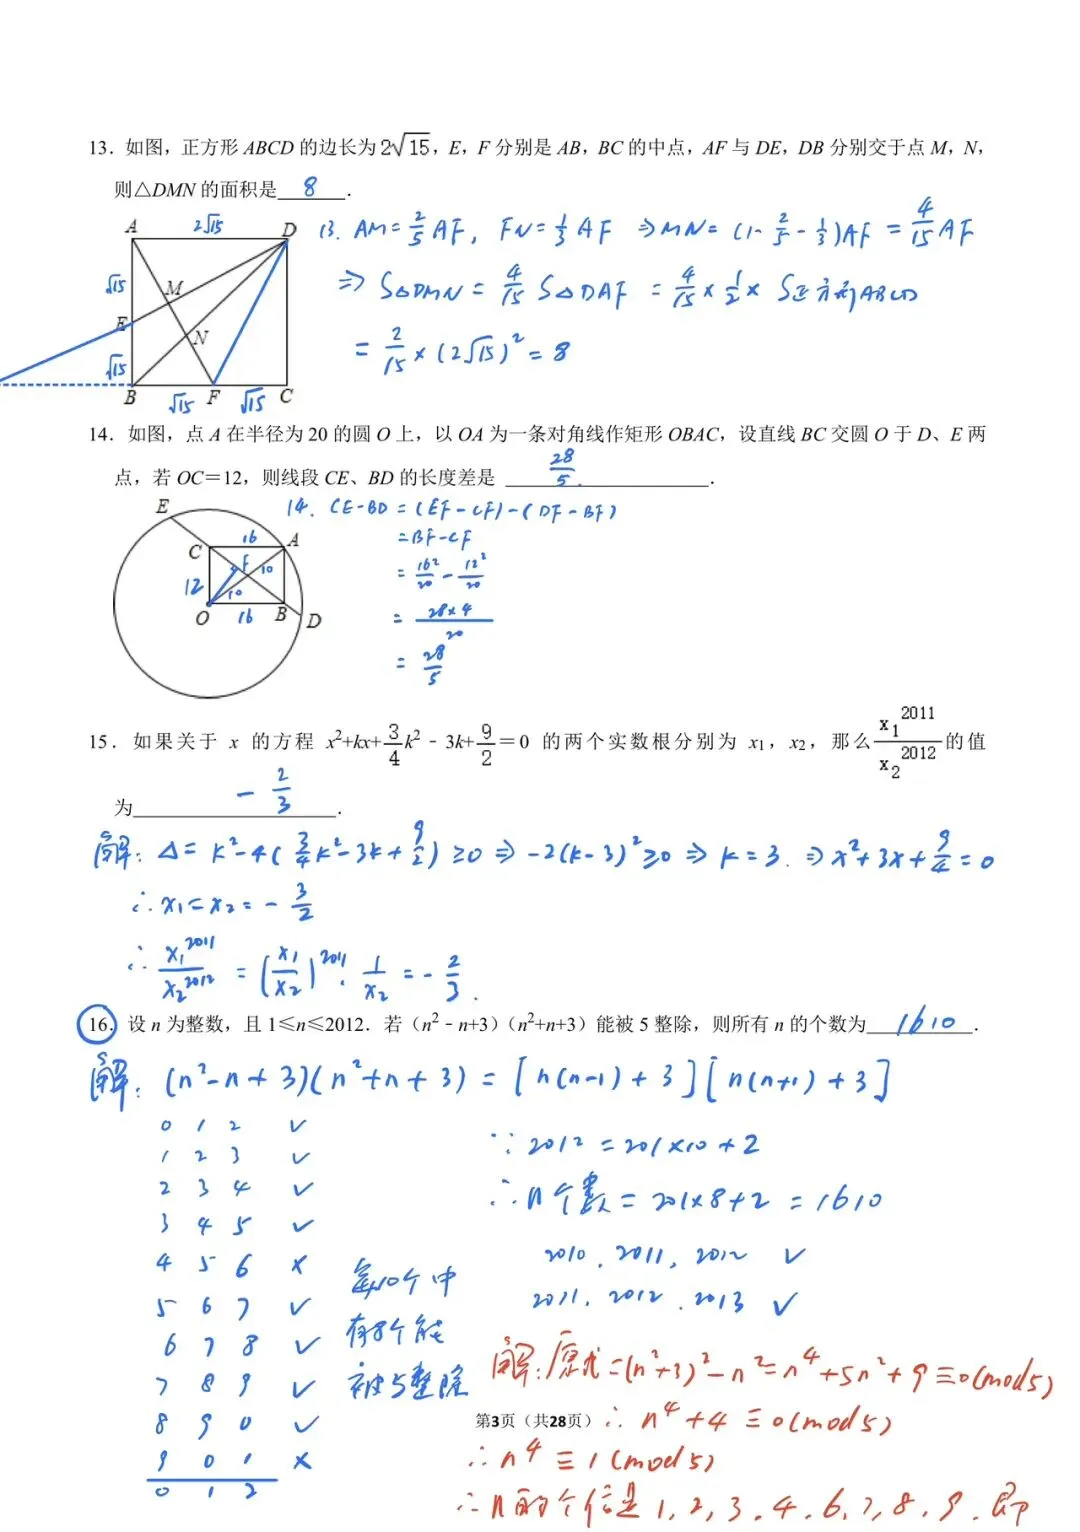 13．如图，正方形 ABCD 的边长为2√15，E，F 分别是 AB，BC 的中点，AF 与 DE，DB 分别交于点 M，N，
则△DMN 的面积是 8 ．
A 2√15 D
√15 M
E N
√15
B √15 F √15 C
13. AM=2/5 AF, FN=1/3 AF ⇒MN=(1-2/5-1/3)AF=4/15 AF
⇒ S△DMN = 4/15 S△DAF = 4/15×1/2× S正方形ABCD
= 2/15×(2√15)²=8
14．如图，点 A 在半径为 20 的圆 O 上，以 OA 为一条对角线作矩形 OBAC，设直线 BC 交圆 O 于 D、E 两
点，若 OC＝12，则线段 CE、BD 的长度差是 28/5 ．
E
C 16 A
F
12 10 10
O 16 B D
14. CE-BD=(EF-CF)-(DF-BF)
=BF-CF
=16²/20-12²/20
=28×4/20
=28/5
15．如果关于 x 的方程 x²+kx+3/4k²﹣3k+9/2＝0 的两个实数根分别为 x₁，x₂，那么x₁²⁰¹¹/x₂²⁰¹²的值
为 -2/3 ．
解：△=k²-4(3/4k²-3k+9/2)≥0⇒-2(k-3)²≥0⇒k=3.⇒x²+3x+9/4=0
∴x₁=x₂=-3/2
∴x₁²⁰¹¹/x₂²⁰¹²=(x₁/x₂)²⁰¹¹·1/x₂=-2/3.
16．设 n 为整数，且 1≤n≤2012．若（n²﹣n+3）（n²+n+3）能被 5 整除，则所有 n 的个数为 1610 ．
解：(n²-n+3)(n²+n+3)=[n(n-1)+3][n(n+1)+3]
0 1 2 ✓
1 2 3 ✓
2 3 4 ✓
3 4 5 ✓
4 5 6 ×
5 6 7 ✓
6 7 8 ✓
7 8 9 ✓
8 9 0 ✓
9 0 1 ×
0 1 2
每10个中
有8个能
被5整除
∵2012=201×10+2
∴n个数=201×8+2=1610
2010, 2011, 2012 ✓
2011, 2012, 2013 ✓
解：原式=(n²+3)²-n²=n⁴+5n²+9≡0(mod5)
第3页（共28页）
∴n⁴+4≡0(mod5)
∴n⁴≡1(mod5)
∴n的个位是1,2,3,4,6,7,8,9.即